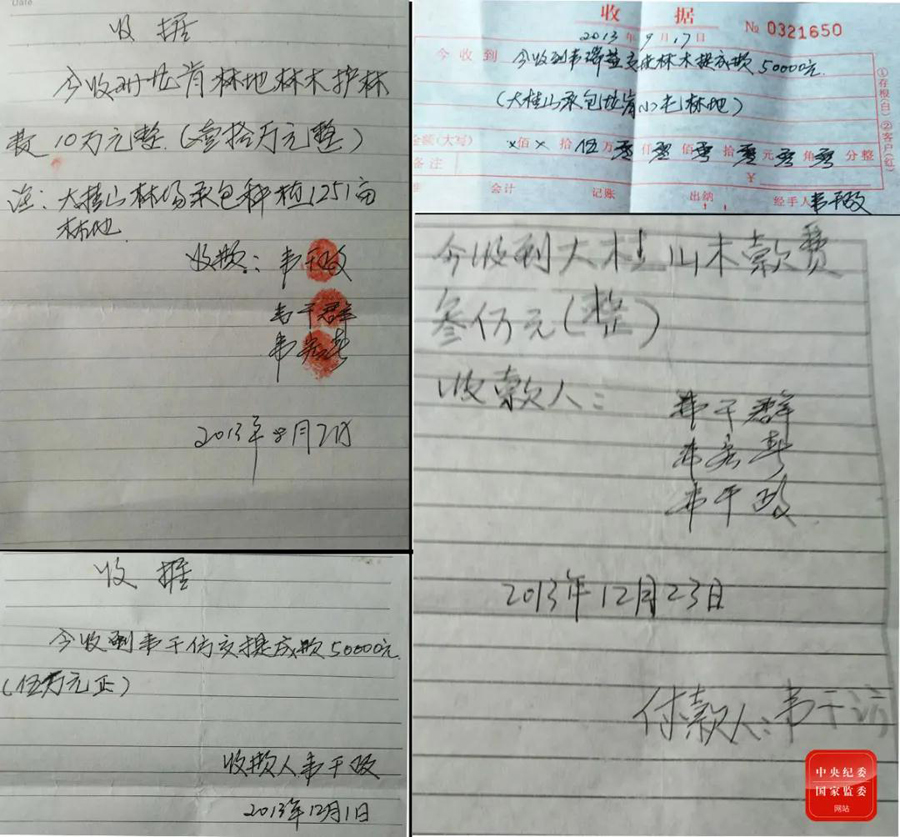 Date
收据
今收到岜肯林地林木护林
费10万元整.(壹拾万元整)
注:大桂山林场承包种植1251亩
林地.
收款:韦干政
韦干群
韦宏寿
2013年8月2日
收据
№ 0321650
2013年9月17日
今收到 交林木提成款50000元
(大桂山承包岜肯 林地)
金额(大写) ×佰×拾伍万零仟零佰零拾零元零角零分整
备注 ¥
会计 记账 出纳 经手人韦干政
①存根(白)②客户(红)
今收到大桂山木款费
叁仟元(整)
收款人:
韦干群
韦宏寿
韦干政
2013年12月23日
付款人:韦干
收据
今收到韦干 交提成款50000元.
(伍万元正)
收款人韦干政
2013年12月1日
中央纪委
国家监委
网站